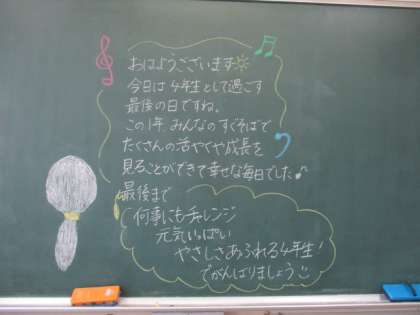 おはようございます
今日は4年生として過ごす
最後の日ですね。
この1年、みんなのすぐそばで
たくさんの活やくや成長を
見ることができて幸せな毎日でした♪
最後まで
何事にもチャレンジ
元気いっぱい
やさしさあふれる4年生!
でがんばりましょう